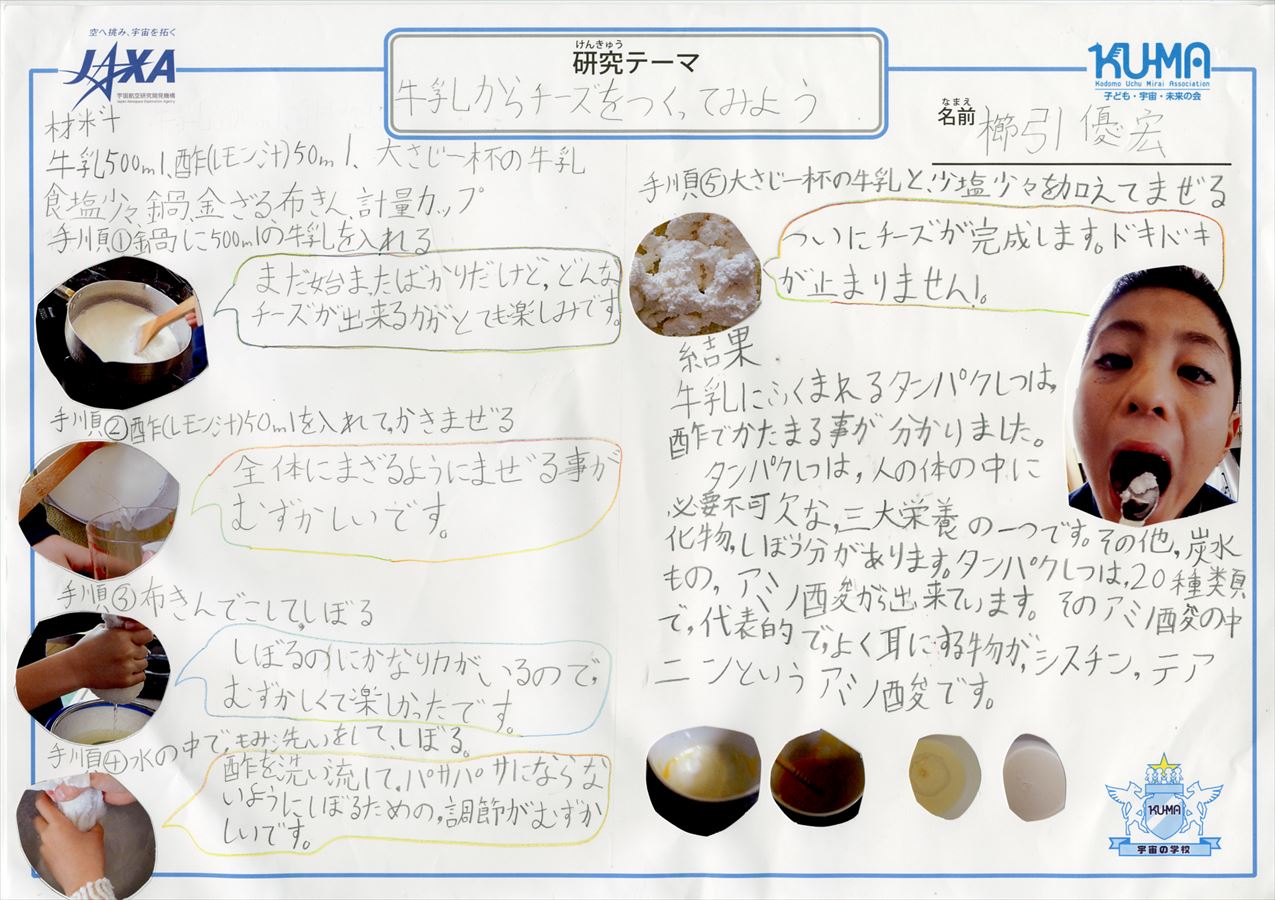 空へ挑み、宇宙を拓く
JAXA
宇宙航空研究開発機構
Japan Aerospace Exploration Agency
けんきゅう
研究テーマ
牛乳からチーズをつくってみよう
KU-MA
Kodomo Uchu Mirai Association
子ども・宇宙・未来の会
なまえ
名前
櫛引優宏
材料
牛乳500ml、酢(レモン汁)50ml、大さじ一杯の牛乳
食塩少々、鍋、金ざる、布きん、計量カップ
手順①鍋に500mlの牛乳を入れる
まだ始またばかりだけど、どんな
チーズが出来るかがとても楽しみです。
手順②酢(レモン汁)50mlを入れて、かきまぜる
全体にまざるようにまぜる事が
むずかしいです。
手順③布きんでこして、しぼる
しぼるのにかなり力がいるので、
むずかしくて楽しかったです。
手順④水の中で、もみ洗いをして、しぼる。
酢を洗い流して、パサパサにならな
いようにしぼるための、調節がむずか
しいです。
手順⑤大さじ一杯の牛乳と、少塩少々を加えてまぜる
ついにチーズが完成します。ドキドキ
が止まりません!。
結果
牛乳にふくまれるタンパクしつは、
酢でかたまる事が分かりました。
タンパクしつは、人の体の中に
必要不可欠な、三大栄養の一つです。その他、炭水
化物、しぼう分があります。タンパクしつは、20種類
もの、アミノ酸から出来ています。そのアミノ酸の中
で、代表的で、よく耳にする物が、シスチン、テア
ニンというアミノ酸です。
KU-MA
宇宙の学校